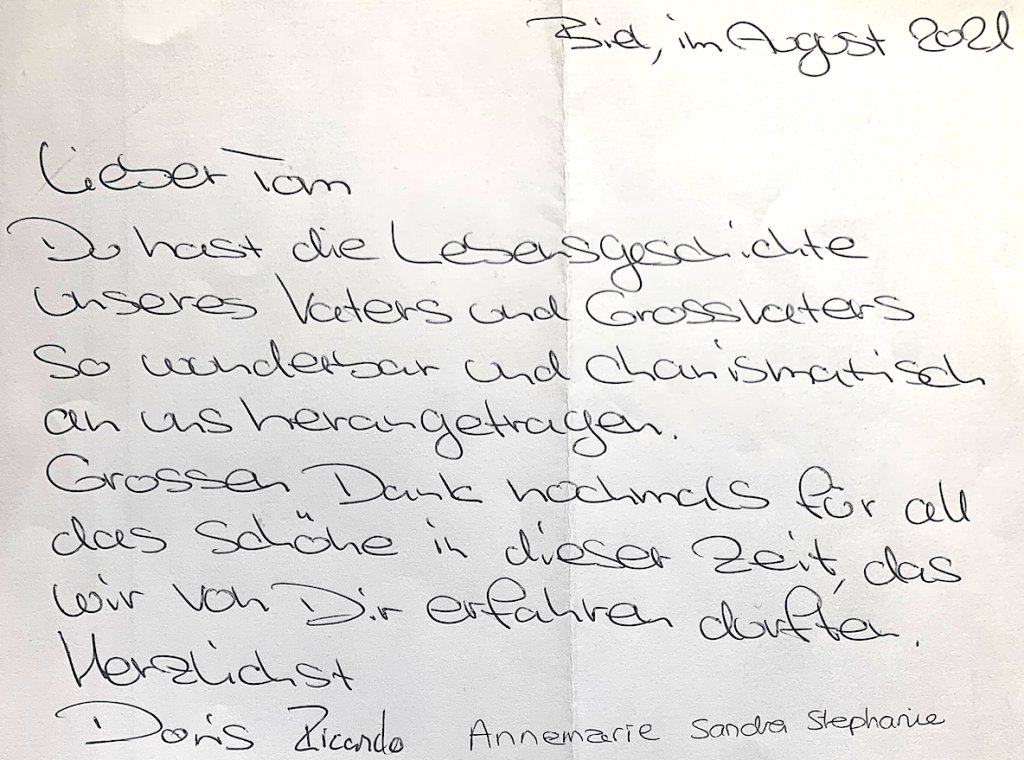 Biel, im August 2021
Lieber Tom
Du hast die Lebensgeschichte
unseres Vaters und Grossvaters
so wunderbar und charismatisch
an uns herangetragen.
Grossen Dank nochmals für all
das Schöne in dieser Zeit, das
wir von Dir erfahren durften.
Herzlichst
Doris Ricardo Annemarie Sandra Stephanie